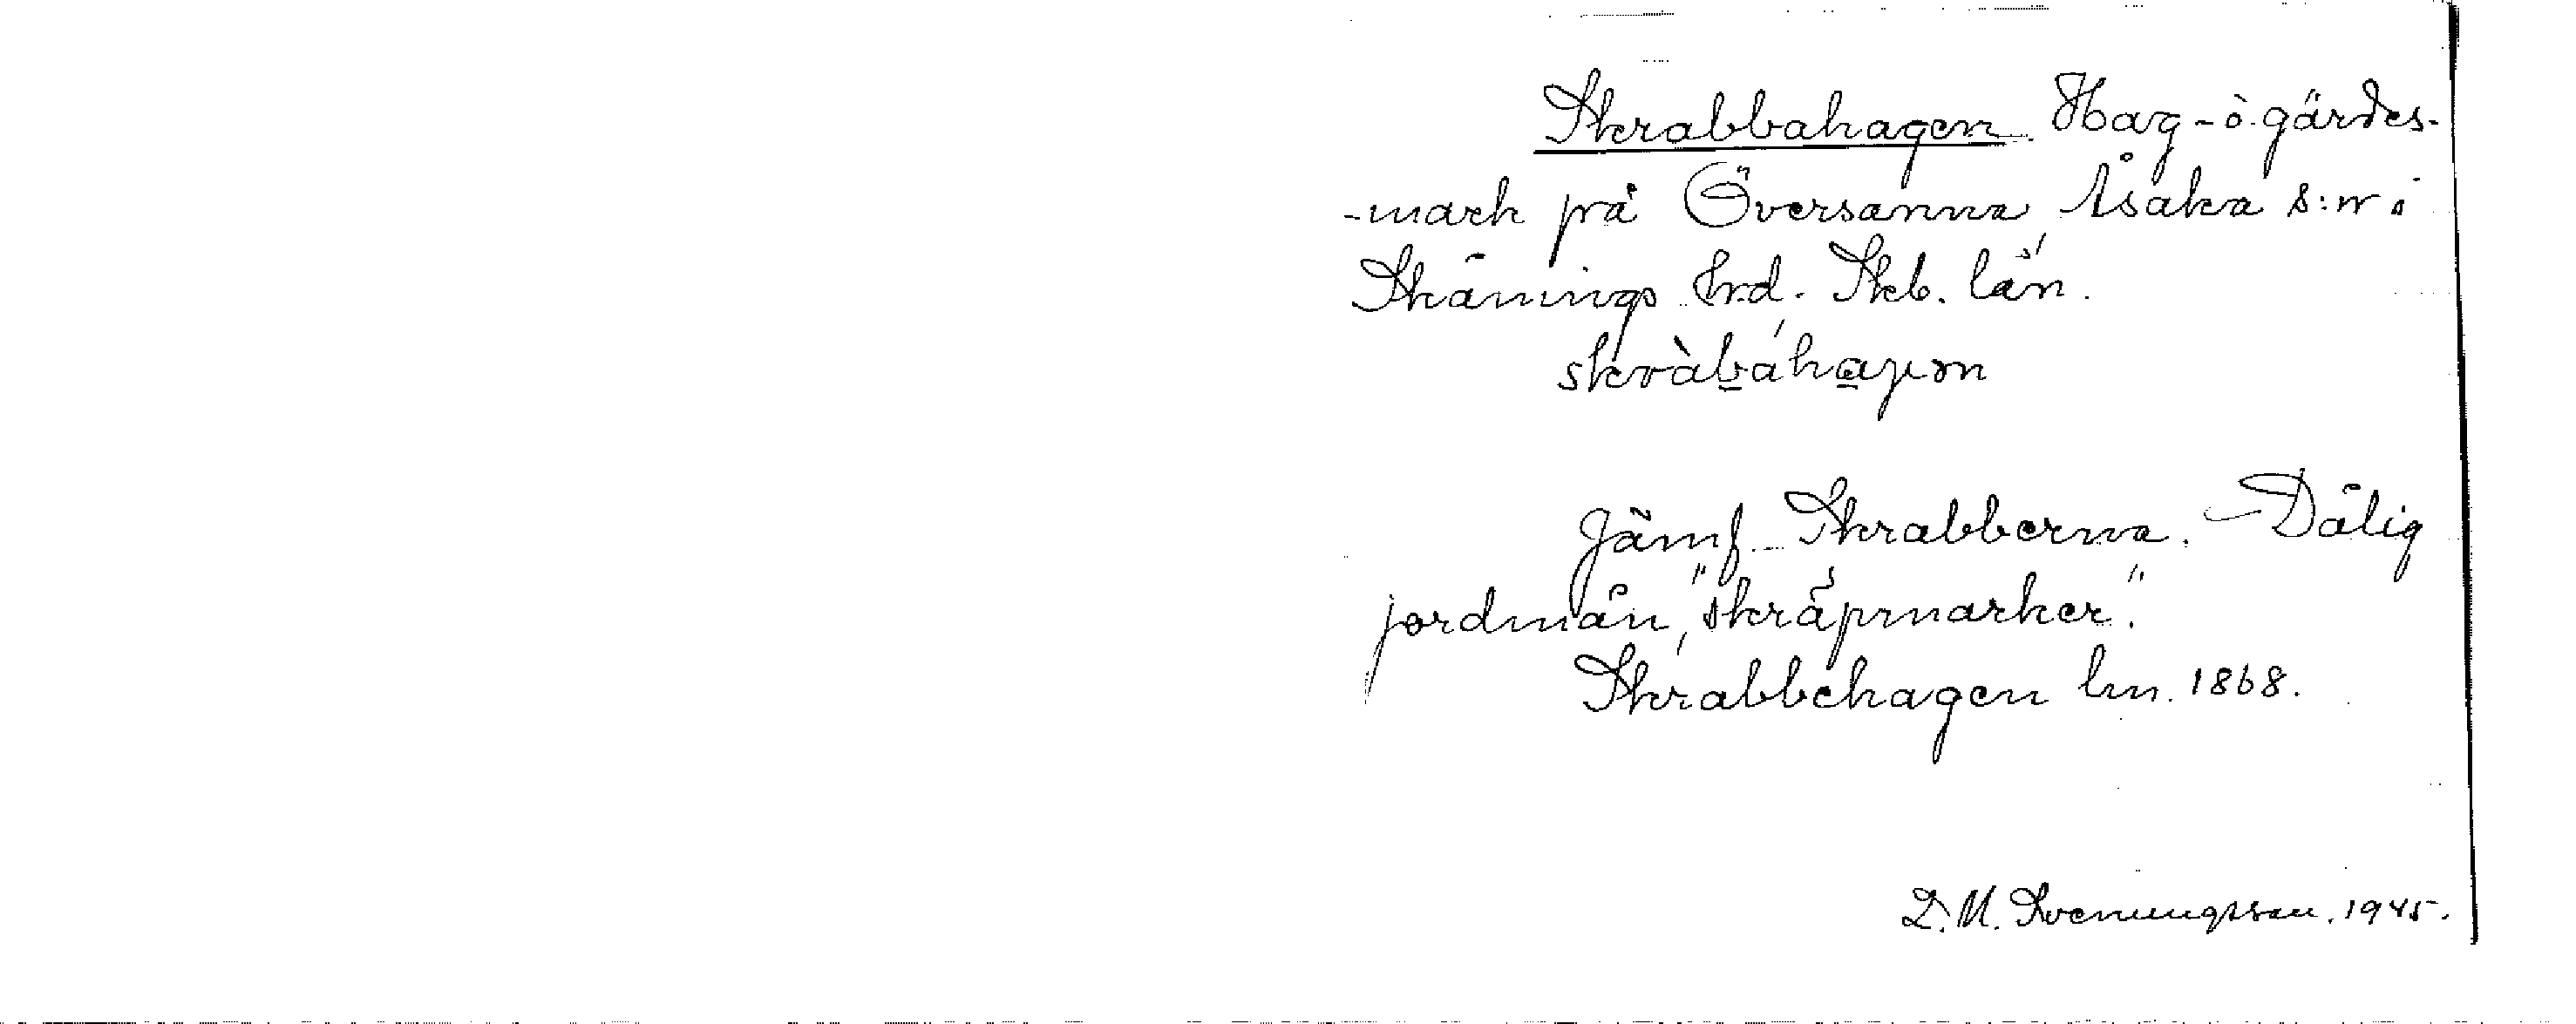 Skrabbahagen. Hag- o. gärdes-
-mark på Översanna, Åsaka s:n i
Skånings hrd. Skb. län.
skràbahaγen
Jämf. Skrabberna. - Dålig
jordmån, "skräpmarker".
Skrabbehagen lm. 1868.
D. M. Svenungsson. 1945.